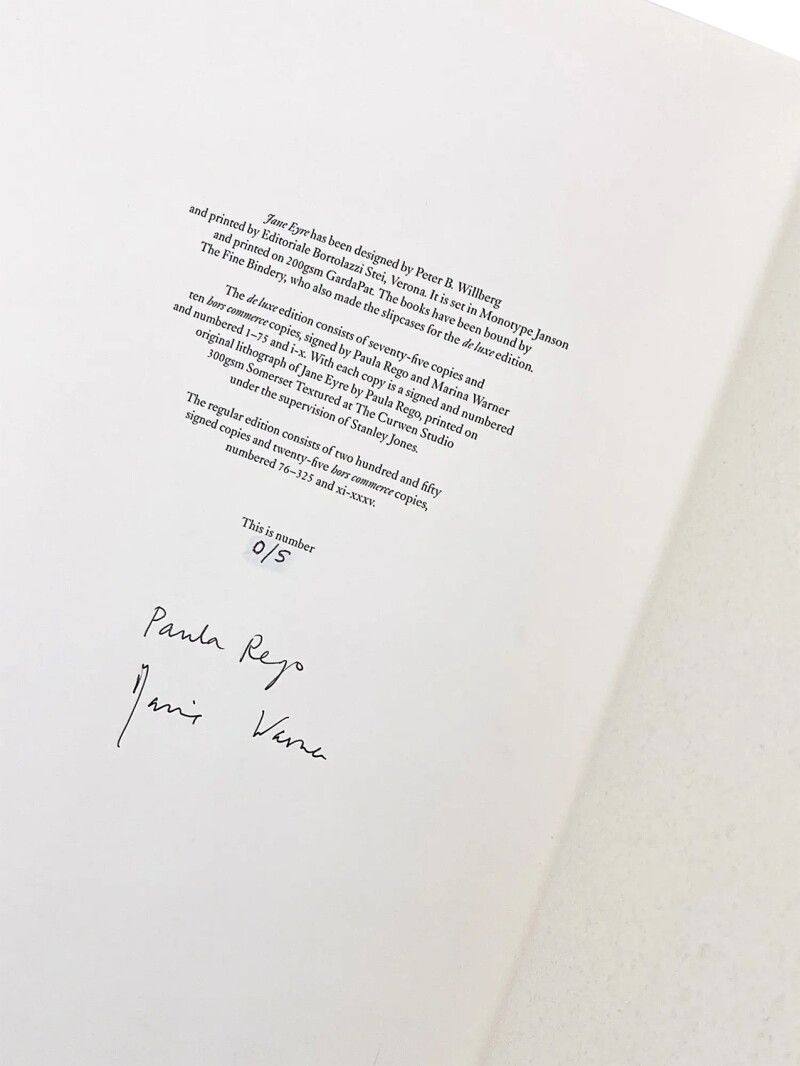 Jane Eyre has been designed by Peter B. Willberg
and printed by Editoriale Bortolazzi Stei, Verona. It is set in Monotype Janson
and printed on 200gsm GardaPat. The books have been bound by
The Fine Bindery, who also made the slipcases for the de luxe edition.
The de luxe edition consists of seventy-five copies and
ten hors commerce copies, signed by Paula Rego and Marina Warner
and numbered 1–75 and i-x. With each copy is a signed and numbered
original lithograph of Jane Eyre by Paula Rego, printed on
300gsm Somerset Textured at The Curwen Studio
under the supervision of Stanley Jones.
The regular edition consists of two hundred and fifty
signed copies and twenty-five hors commerce copies,
numbered 76–325 and xi-xxxv.
This is number
0/S
Paula Rego
Marina Warner